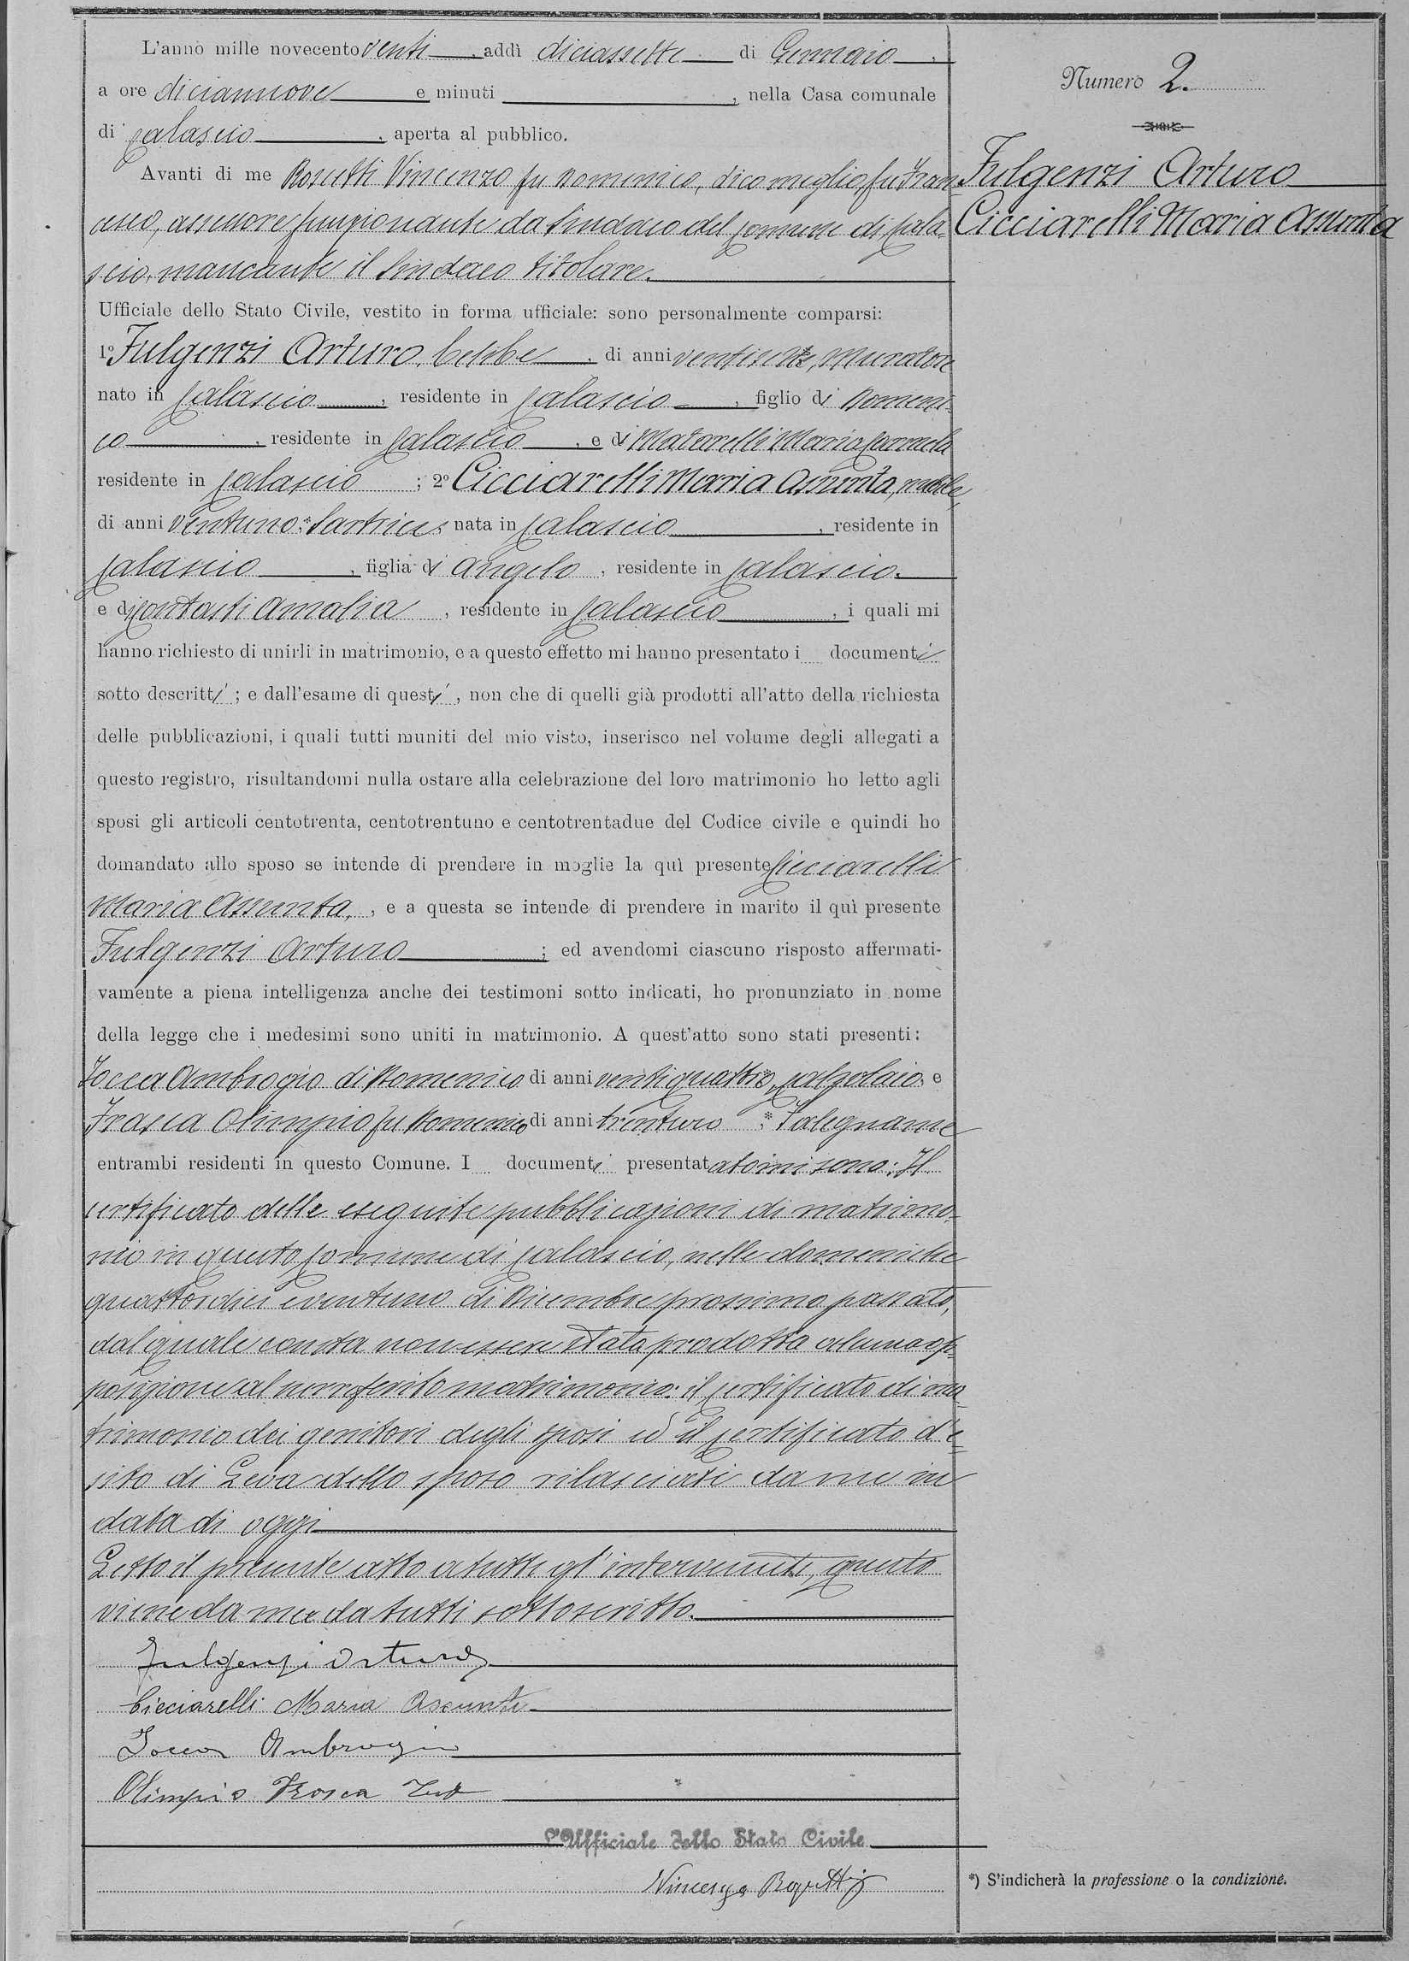 L'anno mille novecento venti, addì diciassette di Gennaio,
a ore diciannove e minuti , nella Casa comunale
di Calascio, aperta al pubblico.
Numero 2.
Avanti di me Rosetti Vincenzo fu Domenico, dico meglio, fu Fran-
cesco, assessore funzionante da Sindaco del Comune di Cala-
scio, mancante il Sindaco titolare.
Fulgenzi Arturo
Cicciarelli Maria Assunta
Ufficiale dello Stato Civile, vestito in forma ufficiale: sono personalmente comparsi:
1º Fulgenzi Arturo, celibe, di anni ventisette, Muratore
nato in Calascio, residente in Calascio, figlio di Domeni-
co, residente in Calascio, e di Matarelli Maria Carmela
residente in Calascio; 2º Cicciarelli Maria Assunta, nubile,
di anni ventuno:* Sartrice, nata in Calascio, residente in
Calascio, figlia di Angelo, residente in Calascio.
e di Contasti Amalia, residente in Calascio, i quali mi
hanno richiesto di unirli in matrimonio, e a questo effetto mi hanno presentato i documenti
sotto descritti; e dall'esame di questi, non che di quelli già prodotti all'atto della richiesta
delle pubblicazioni, i quali tutti muniti del mio visto, inserisco nel volume degli allegati a
questo registro, risultandomi nulla ostare alla celebrazione del loro matrimonio ho letto agli
sposi gli articoli centotrenta, centotrentuno e centotrentadue del Codice civile e quindi ho
domandato allo sposo se intende di prendere in moglie la quì presente Cicciarelli
Maria Assunta, , e a questa se intende di prendere in marito il quì presente
Fulgenzi Arturo ; ed avendomi ciascuno risposto affermati-
vamente a piena intelligenza anche dei testimoni sotto indicati, ho pronunziato in nome
della legge che i medesimi sono uniti in matrimonio. A quest'atto sono stati presenti:
Iocca Ambrogio di Domenico di anni ventiquattro,* calzolaio e
Frasca Olimpio fu Domenico di anni trentuno *; Falegname
entrambi residenti in questo Comune. I documenti presentatomi sono: Il
certificato delle eseguite pubblicazioni di matrimo-
nio in questo Comune di Calascio, nelle domeniche
quattordici e ventuno di Dicembre prossimo passato,
dal quale consta non essere stata prodotta alcuna op-
posizione al surriferito matrimonio: il certificato di ma-
trimonio dei genitori degli sposi ed il certificato d'e-
sito di Leva dello sposo rilasciati da me in
data di oggi
Letto il presente atto a tutti gl'intervenuti, questo
viene da me e da tutti sottoscritto.
Fulgenzi Arturo
Cicciarelli Maria Assunta
Iocca Ambrogio
Olimpio Frasca Test
L'Ufficiale dello Stato Civile
Vincenzo Rosetti
*) S'indicherà la professione o la condizione.